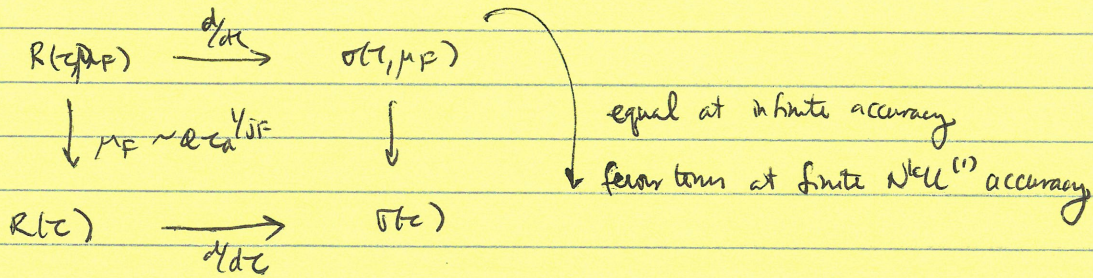 d/dτ
R(τ,μ_F) → σ(τ,μ_F)
↓ μ_F ~ Qτ_a^{1/j_F} ↓ equal at infinite accuracy
fewer terms at finite N^kLL^{(1)} accuracy
R(τ) → σ(τ)
d/dτ